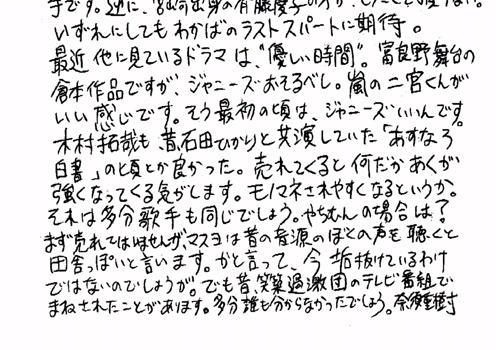 手です。逆に、
いずれにしてもわかばのラストスパートに期待。
最近他に見ているドラマは、“優しい時間”。富良野舞台の
倉本作品ですが、ジャニーズおそるべし。嵐の二宮くんが
いい感じです。そう最初の頃は、ジャニーズいいんです。
木村拓哉も、昔石田ひかりと共演していた「あすなろ
白書」の頃とか良かった。売れてくると何だかあくが
強くなってくる気がします。モノマネされやすくなるというか。
それは多分歌手も同じでしょう。やちむんの場合は?
まず売れてはいませんが、マスヨは昔の音源のほどの声を聴くと
田舎っぽいと言います。かと言って、今垢抜けているわけ
ではないのでしょうが。でも昔、笑築過激団のテレビ番組で
まねされたことがあります。多分誰も分からなかったでしょう。奈須重樹